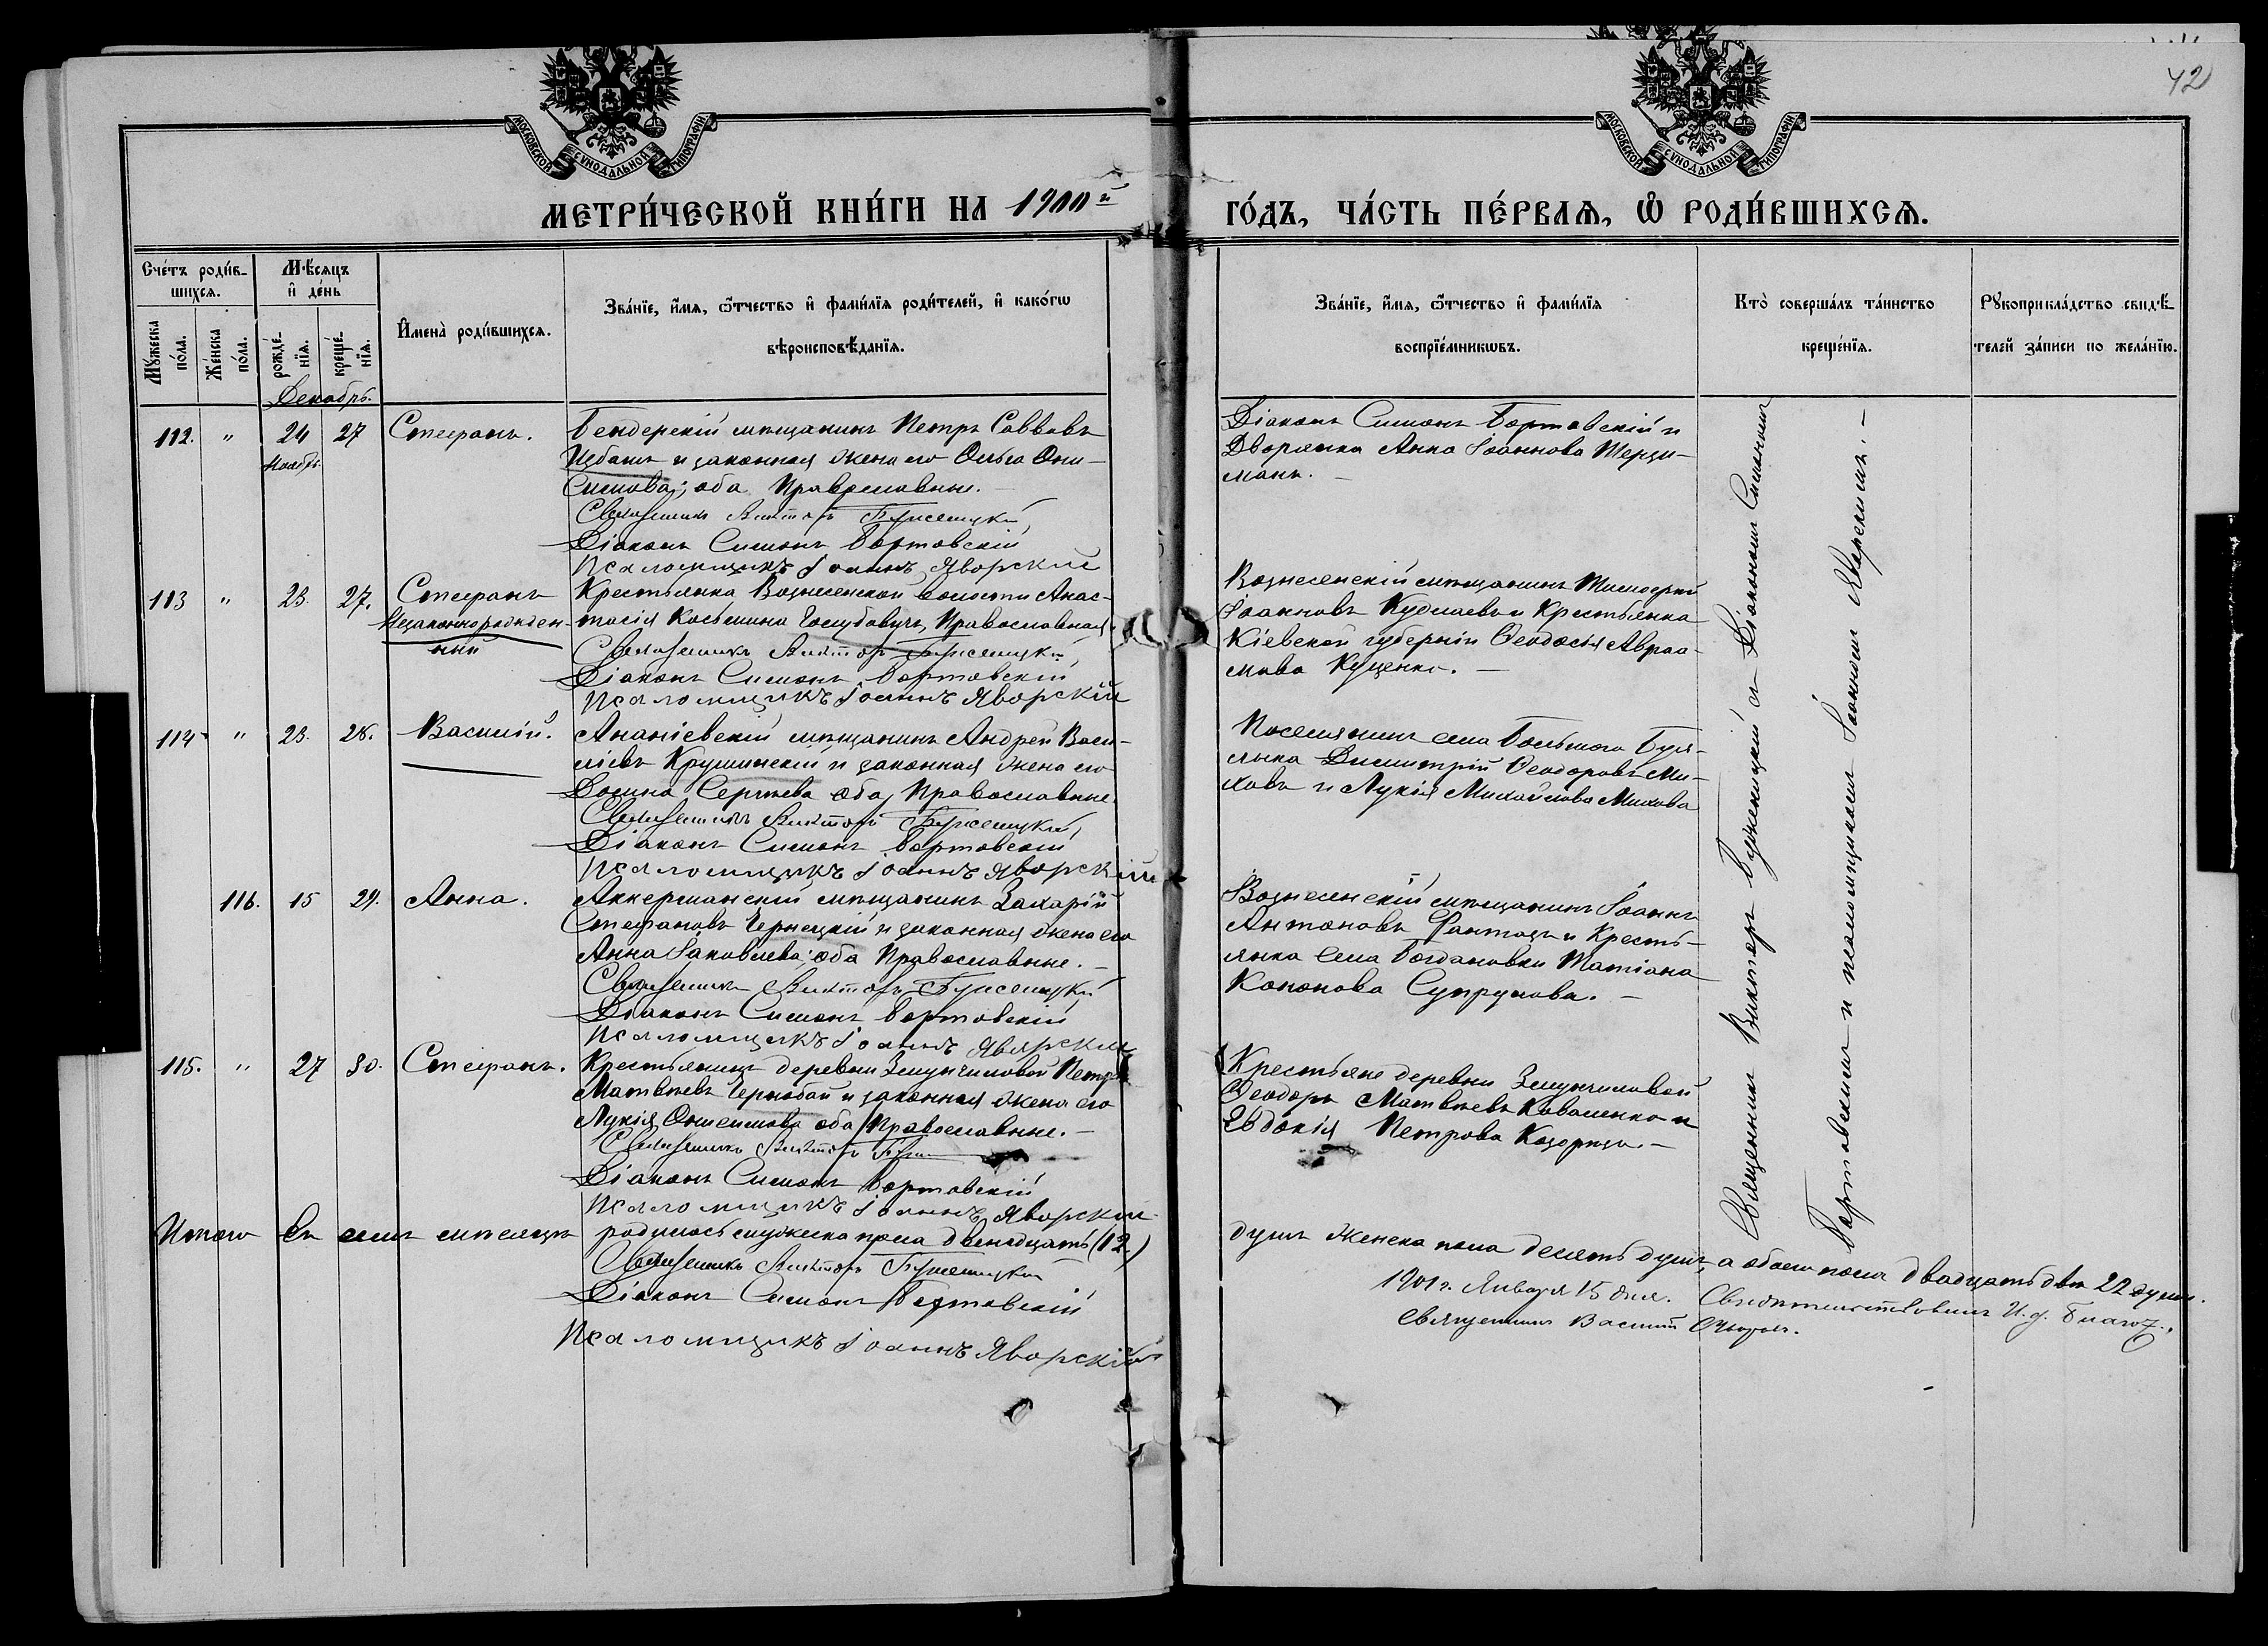 42
МОСКОВСКОЙ СУНОДАЛЬНОЙ ТИПОГРАФІИ
МОСКОВСКОЙ СУНОДАЛЬНОЙ ТИПОГРАФІИ
МЕТРИ́ЧЕСКОЙ КНИ́ГИ НА 1900й
ГО́ДЪ, ЧА́СТЬ ПЕ́РВАЯ, Ѡ РОДИ́ВШИХСЯ.
Счéтъ роди́в-
шихся.
Мꙋжеска пóла.
Жéнска пóла.
Мѣсяцъ
и҆ дéнь
рождé-
нїя.
крещé-
нїя.
И҆менà роди́вшихся.
Звáнїе, и҆́мя, ѿ́чество и҆ фами́лїя роди́телей, и҆ какóгѡ
вѣроисповѣ́данїя.
Звáнїе, и҆́мя, ѿ́чество и҆ фами́лїя
воспрїéмникѡвъ.
Ктò совершáлъ тáинство
крещéнїя.
Рꙋкоприклáдство свидѣ́-
телей зáписи по желáнїю.
Декабрь.
112. " 24 27 Стефанъ.
Ноябрь
Бендерскій мѣщанинъ Петръ Саввовъ
Избашъ и законная жена его Ольга Они-
симова; оба Православные.
Священникъ Викторъ Бужеицкій
Діаконъ Симонъ Бортовскій
Псаломщикъ Іоаннъ Яворскій
Діаконъ Симонъ Бортовскій и
Дворянка Анна Іоаннова Терзи-
манъ.
113 " 23. 27. Стефанъ
Незаконнорожден-
ный
Крестьянка Вознесенской волости Анас-
тасія Косьмина Голубовичъ, Православная.
Священникъ Викторъ Бужеицкій
Діаконъ Симонъ Бортовскій
Псаломщикъ Іоаннъ Яворскій
Вознесенскій мѣщанинъ Тимоѳей
Іоанновъ Кудлаевъ и Крестьянка
Кіевской губерніи Ѳеодосія Авраа-
мова Куценко.
114 " 23. 28. Василій.
Ананіевскій мѣщанинъ Андрей Васи-
ліевъ Крушинскій и законная жена его
Домна Сергѣева оба Православные.
Священникъ Викторъ Бужеицкій
Діаконъ Симонъ Бортовскій
Псаломщикъ Іоаннъ Яворскій
Поселянинъ села Большого Буя-
лыка Димитрій Ѳеодоровъ Ми-
ховъ и Лукія Михайлова Михова
116. 15 29. Анна.
Аккерманскій мѣщанинъ Захарій
Стефановъ Чернецкій и законная жена его
Анна Іаковлева; оба Православные.
Священникъ Викторъ Бужеицкій
Діаконъ Симонъ Бортовскій
Псаломщикъ Іоаннъ Яворскій
Вознесенскій мѣщанинъ Іоаннъ
Антоновъ и Кресть-
янка села Богдановки Татіана
Кононова Супрунова.
115. " 27 30. Стефанъ.
Крестьянинъ деревни Петръ
Матвѣевъ Чернобай и законная жена его
Лукія Онисимова оба Православные.
Священникъ Викторъ
Діаконъ Симонъ Бортовскій
Псаломщикъ Іоаннъ Яворскій
Крестьяне деревни
Ѳеодоръ Матвѣевъ Коваленко и
Евдокія Петрова Кадорица.
Священникъ Викторъ Бужеицкій съ Діакономъ Симономъ
Бортовскимъ и псаломщикомъ Іоанномъ Яворскимъ.
Итого въ семъ мѣсяцѣ родилось мужеска пола двенадцать (12)
душъ женска пола десять душъ, а обоего пола двадцать двѣ 22 души.
Священникъ Викторъ Бужеицкій
Діаконъ Симонъ Бортовскій
Псаломщикъ Іоаннъ Яворскій
1901 г. Января 15 дня. Свидѣтельствовалъ И. д. Благоч.
священникъ Василій